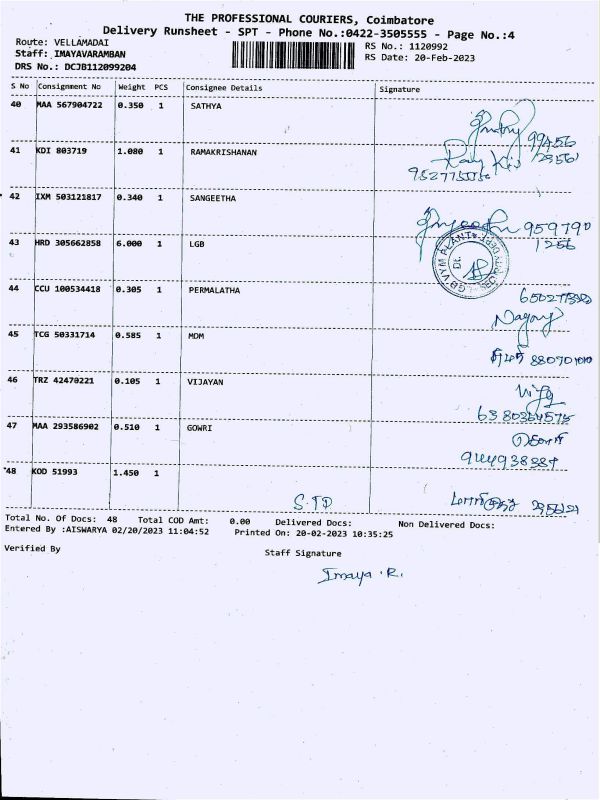 THE PROFESSIONAL COURIERS, Coimbatore
Delivery Runsheet - SPT - Phone No.:0422-3505555 - Page No.:4
Route: VELLAMADAI
Staff: IMAYAVARAMBAN
DRS No.: DCJB112099204
RS No.: 1120992
RS Date: 20-Feb-2023
S No Consignment No Weight PCS Consignee Details Signature
40 MAA 567904722 0.350 1 SATHYA
41 KDI 803719 1.080 1 RAMAKRISHANAN
42 IXM 503121817 0.340 1 SANGEETHA
959790
1256
43 HRD 305662858 6.000 1 LGB
44 CCU 100534418 0.305 1 PERMALATHA
45 TCG 50331714 0.585 1 MDM
46 TRZ 42470221 0.105 1 VIJAYAN
47 MAA 293586902 0.510 1 GOWRI
48 KOD 51993 1.450 1
S.TD
Total No. Of Docs: 48 Total COD Amt: 0.00 Delivered Docs: Non Delivered Docs:
Entered By :AISWARYA 02/20/2023 11:04:52 Printed On: 20-02-2023 10:35:25
Verified By
Staff Signature
Imaya .R.